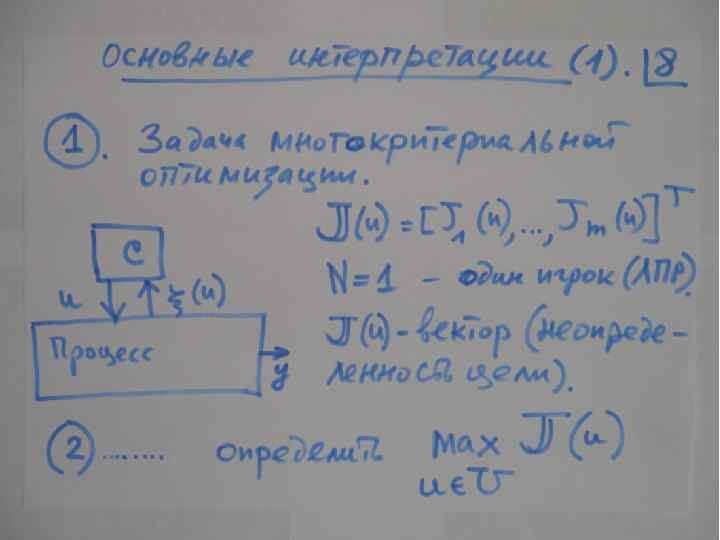 Основные интерпретации (1). 8
1. Задача многокритериальной
оптимизации.
𝕁(u) = [J₁(u), ..., Jm(u)]ᵀ
C
N=1 - один игрок (ЛПР).
u ξ(u)
𝕁(u) - вектор (неопреде-
ленность цели).
Процесс
y
2 ........ определить max 𝕁(u)
u∈U